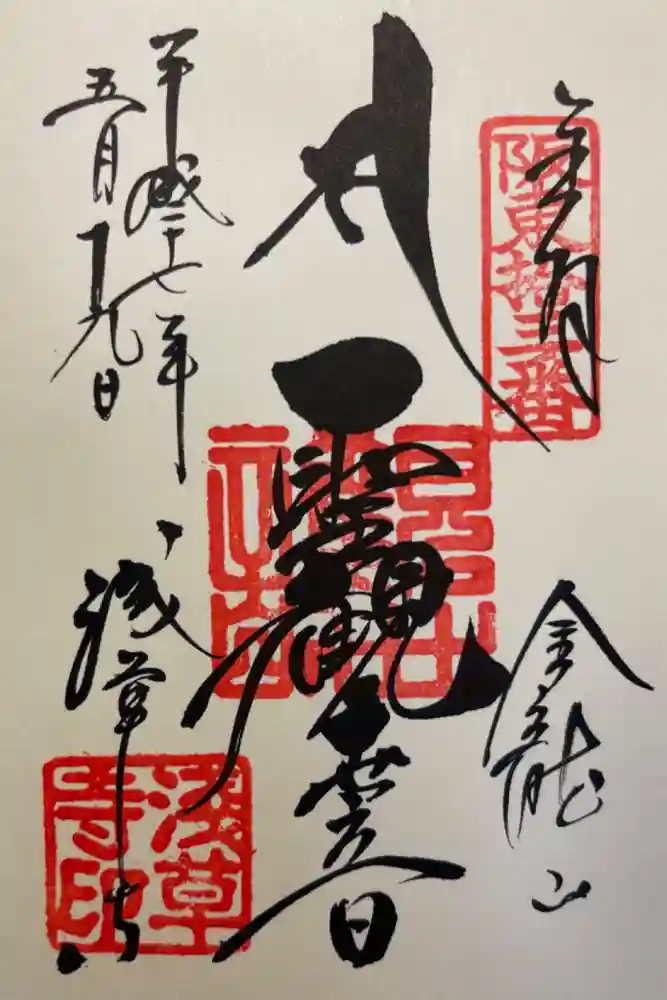 奉拝
阪東拾三番
聖觀世音
金龍山
平成二十七年
五月十九日
浅草寺
浅草寺印